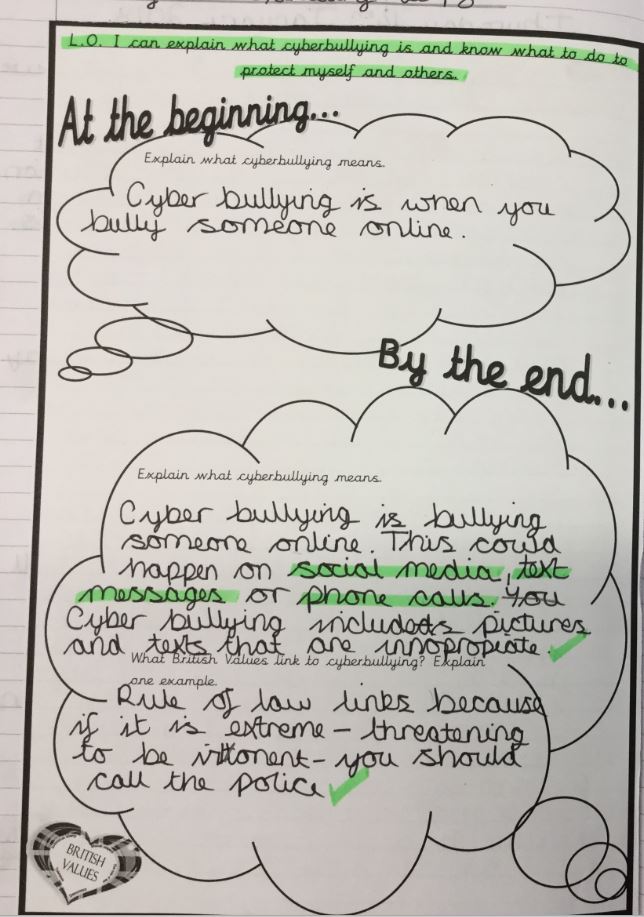 L.O. I can explain what cyberbullying is and know what to do to
protect myself and others.
At the beginning...
Explain what cyberbullying means.
Cyber bullying is when you
bully someone online.
By the end...
Explain what cyberbullying means.
Cyber bullying is bullying
someone online. This could
happen on social media, text
messages or phone calls. You
Cyber bullying includes pictures
and texts that are innopropiate.
What British Values link to cyberbullying? Explain
one example.
Rule of law links because
if it is extreme - threatening
to be - you should
call the police
BRITISH
VALUES